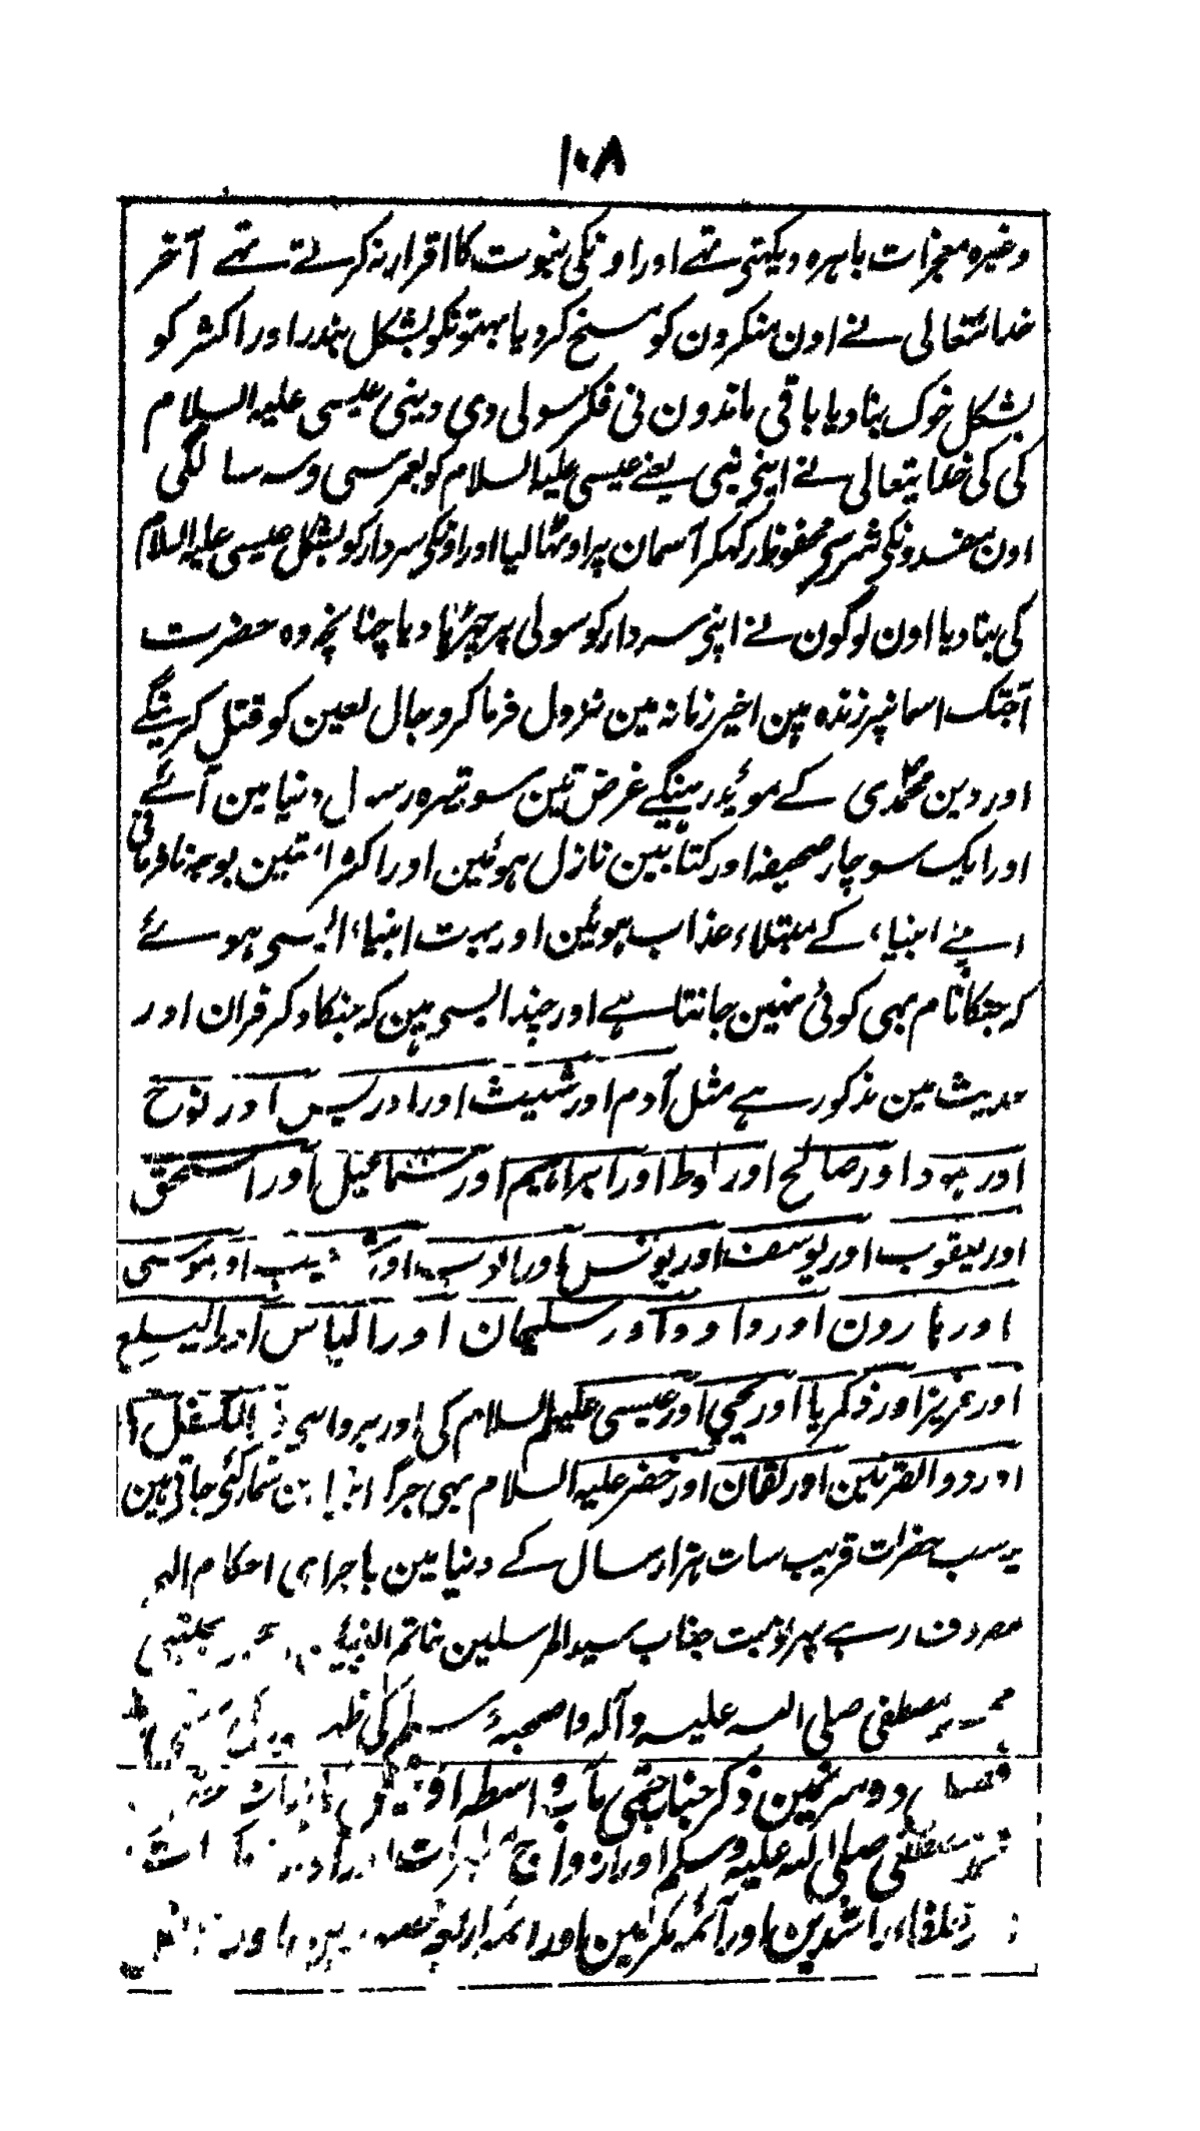 ۱۰۸
وغیرہ معجزات باہرہ دیکہتی تہے اور اونکی نبوت کا اقرار نہ کرتے تہے آخر
خدائتعالی نے اون منکرون کو مسخ کردیا بہتونکو بشکل بندر اور اکثر کو
بشکل خوک بنادیا باقی ماندون نی فکر سولی دی دینی عیسی علیہ السلام
کی کی خدایتعالی نے اپنی نبی یعنے عیسی علیہ السلام کو بعمر سی وسہ سالگی
اون مفسدونکی شر سی محفوظ رکہکر آسمان پر اوٹہالیا اور اونکی سردار کو بشکل عیسی علیہ السلام
کی بنادیا اون لوگون نے اپنی سردار کو سولی پر چڑہا دیا چنانچہ وہ حضرت
آجتک اسمانپر زندہ ہین اخیر زمانہ مین نزول فرما کر دجال لعین کو قتل کرینگے
اور دین محمدی کے موئید رہینگے غرض تین سو تیرہ رسول دنیا مین آئے
اور ایک سو چار صحیفہ اور کتابین نازل ہوئین اور اکثر امتین بوجہ نافرمانی
اپنے انبیاء کے مبتلاء عذاب ہوئین اور بہت انبیاء ایسی ہوئے
کہ جنکا نام بہی کوئی نہین جانتا ہے اور چند ایسی ہین کہ جنکا ذکر قران اور
حدیث مین مذکور ہے مثل آدم اور شیث اور ادریس اور نوح
اور ہود اور صالح اور لوط اور ابراہیم اور اسماعیل اور اسحق
اور یعقوب اور یوسف اور یونس اور ایوب اور شعیب اور موسی
اور ہارون اور داوود اور سلیمان اور الیاس اور الیسع
اور عزیز اور ذکریا اور یحیی اور عیسی علیہم السلام کی اور بروایتی ذالکفل
اور ذوالقرنین اور لقمان اور خضر علیہ السلام بہی جرگہ انبیا مین شمار کئی جاتی ہین
یہ سب حضرات قریب سات ہزار سال کے دنیا مین باجراے احکام الہی
مصروف رہے پہر نوبت جناب سید المرسلین خاتم النبیین مجتبی
محمد مصطفی صلی اللہ علیہ وآلہ واصحبہ وسلم کی ظہور
فصل دوسری مین ذکر جناب ختمی مآب واسطہ
محمد مصطفی صلی اللہ علیہ وسلم اور ازواج مطہرات اور اولاد
خلفاء راشدین اور آئمہ مکرمین اور ائمہ اربعہ اور